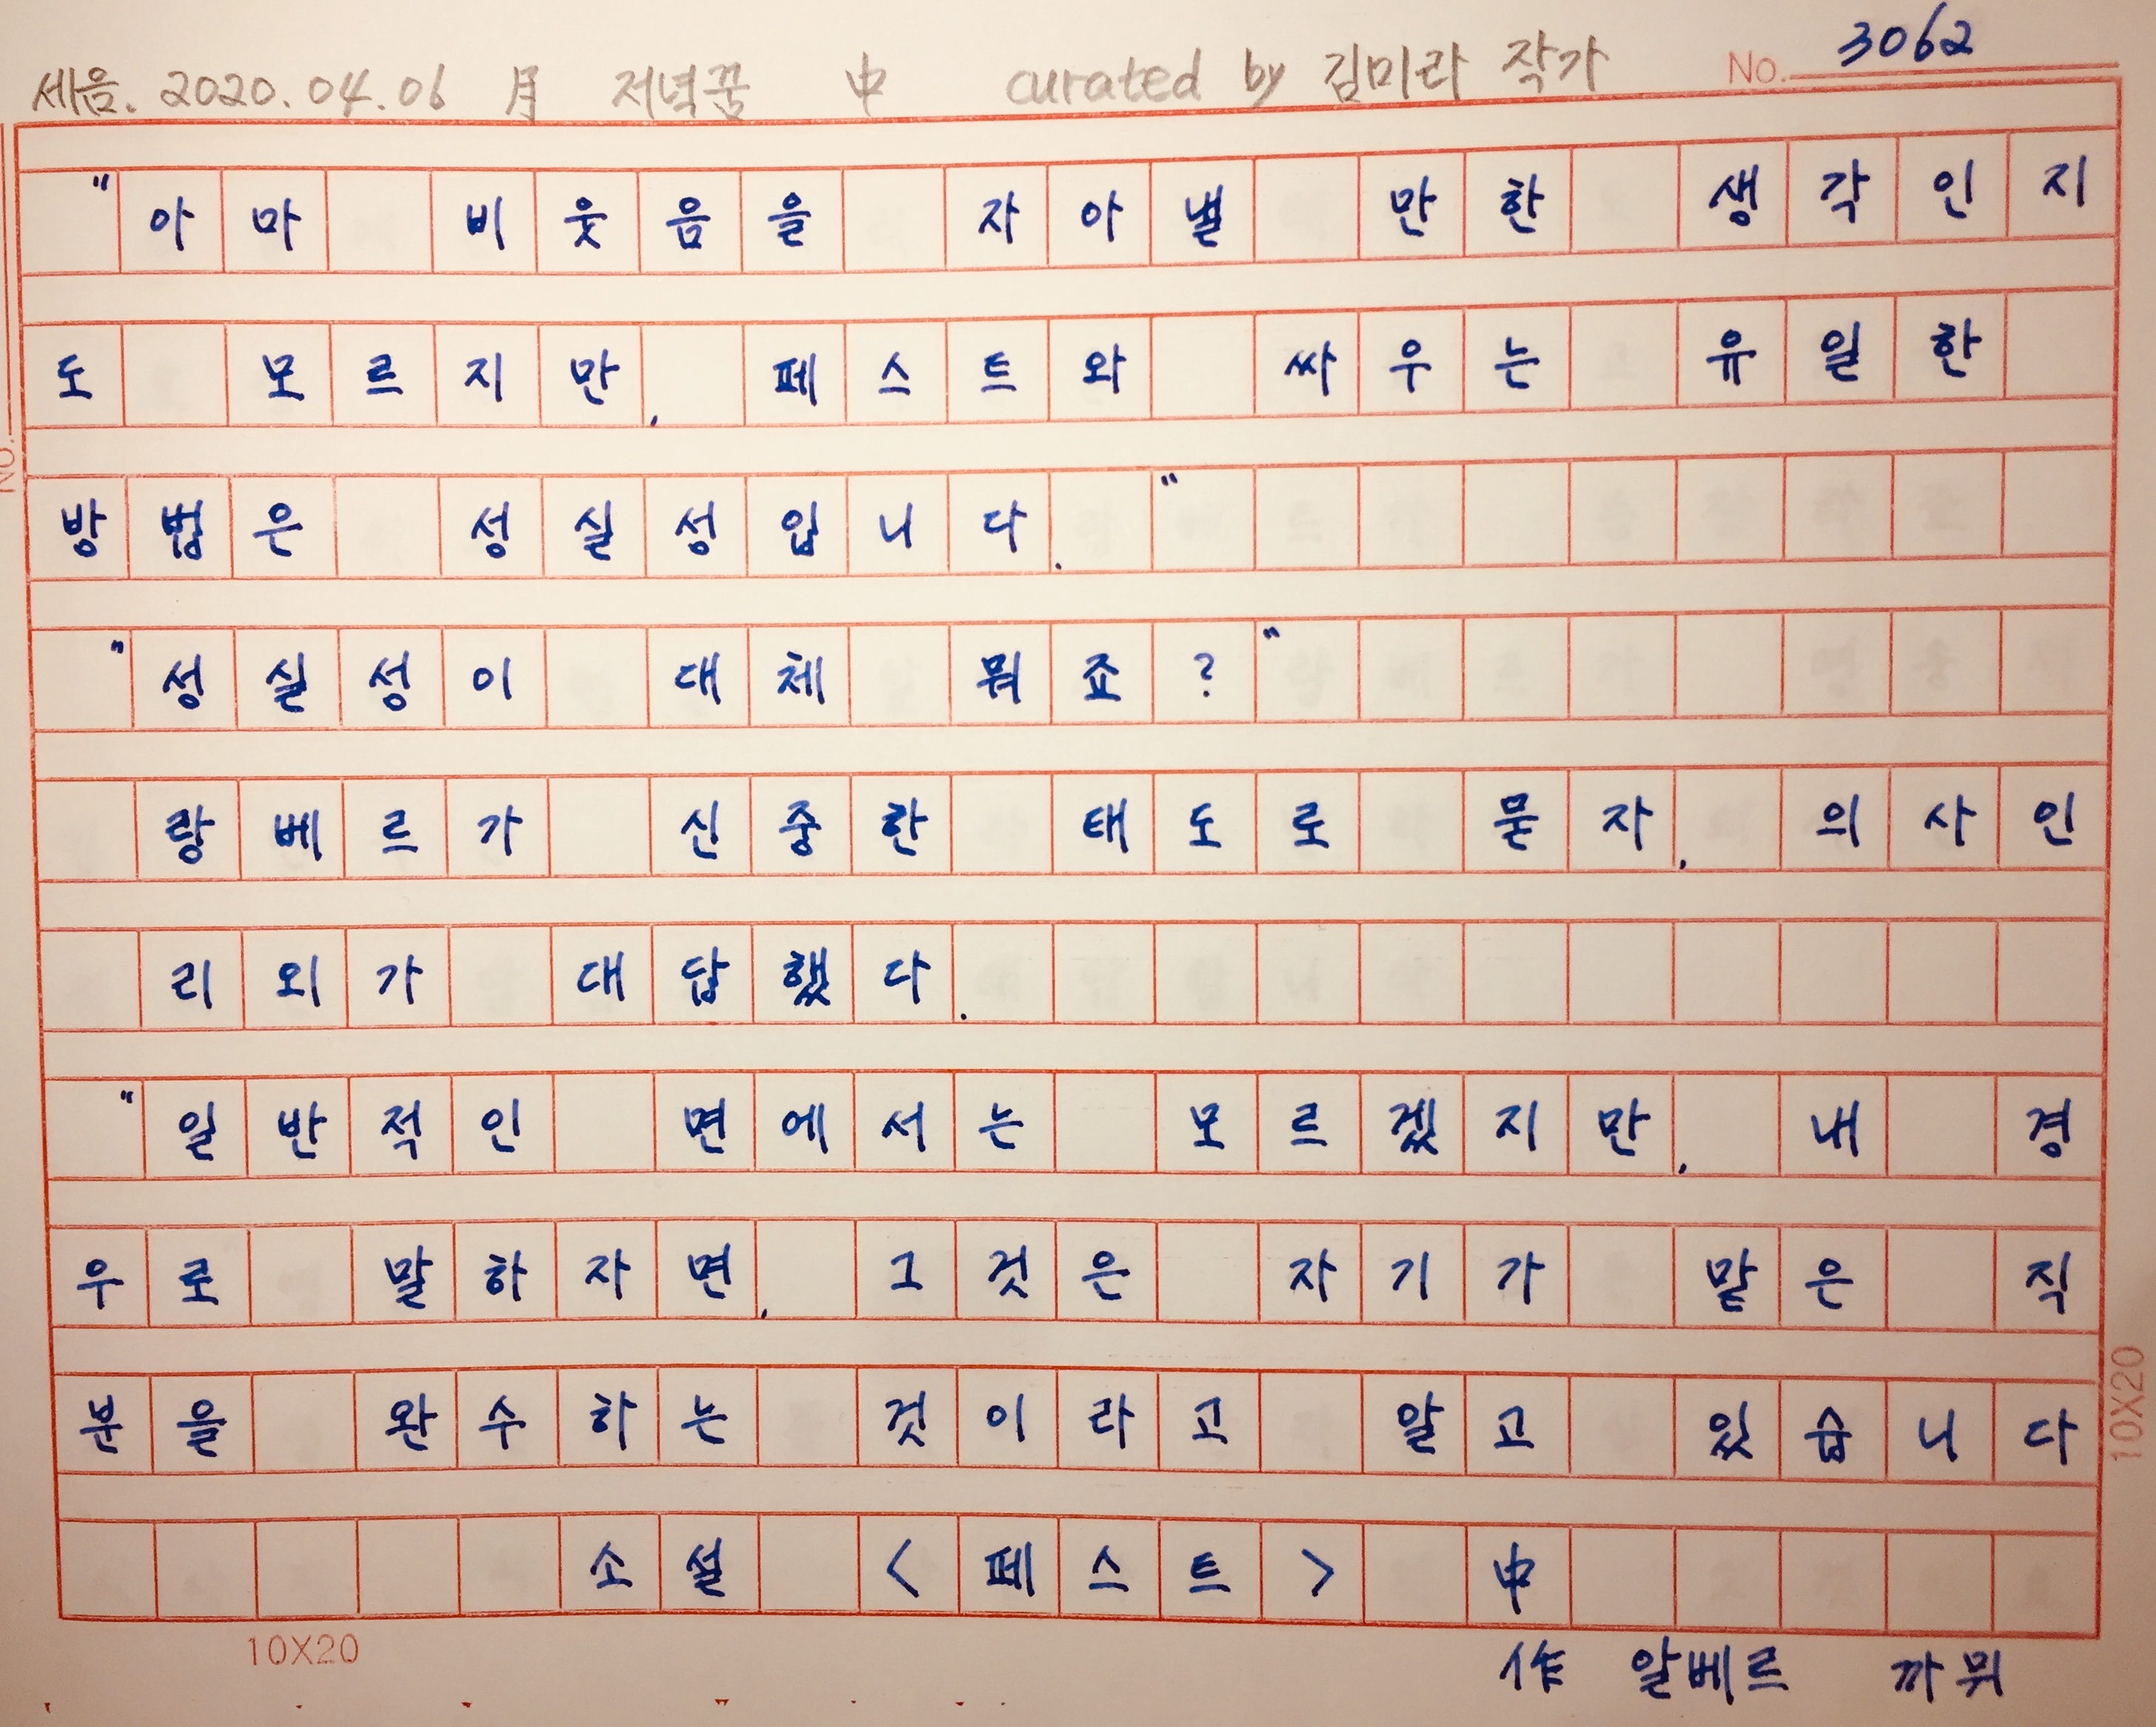 세음. 2020.04.06 月 저녁꿈 中 curated by 김미라 작가 No. 3062
"아마 비웃음을 자아낼 만한 생각인지
도 모르지만, 페스트와 싸우는 유일한
방법은 성실성입니다."
"성실성이 대체 뭐죠?"
랑베르가 신중한 태도로 묻자, 의사인
리외가 대답했다.
"일반적인 면에서는 모르겠지만, 내 경
우로 말하자면, 그것은 자기가 맡은 직
분을 완수하는 것이라고 알고 있습니다
소설 <페스트> 中
10X20
10X20
作 알베르 까뮈
NO.